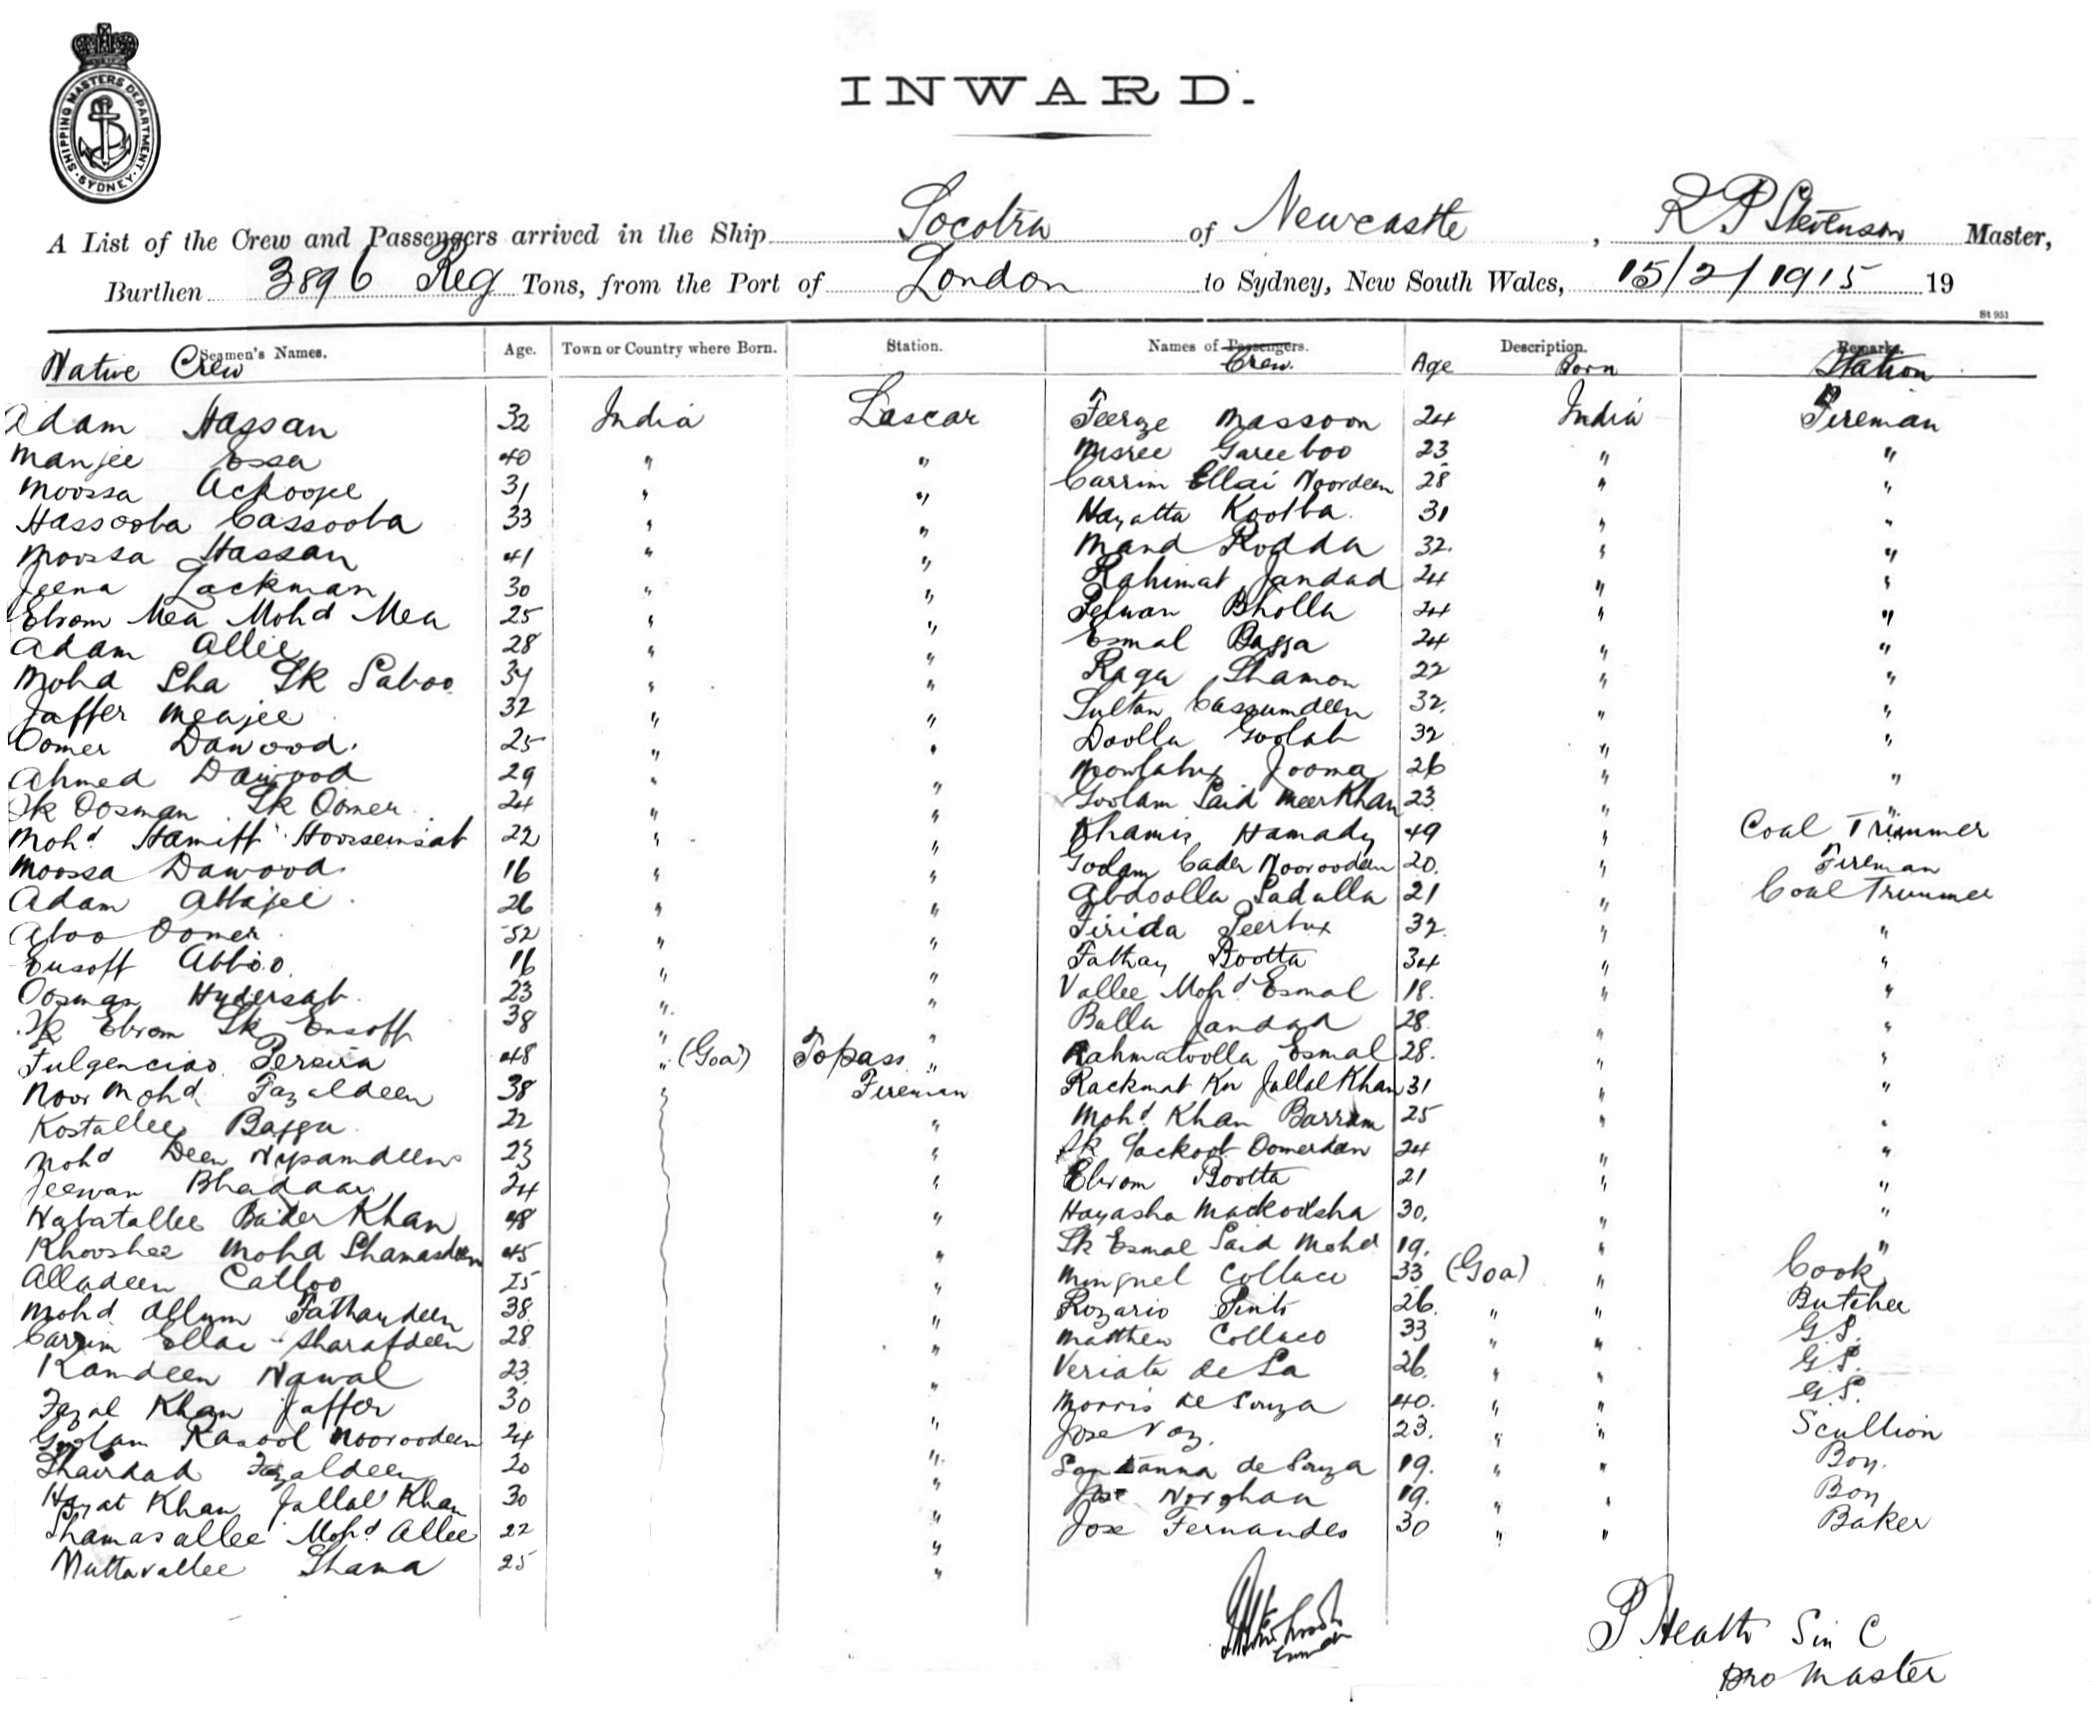 SHIPPING MASTERS DEPARTMENT
SYDNEY
INWARD.
A List of the Crew and Passengers arrived in the Ship Socotra of Newcastle, R P Stevenson Master,
Burthen 3896 Reg Tons, from the Port of London to Sydney, New South Wales, 15/2/1915 19
St 951
Seamen's Names. Age. Town or Country where Born. Station. Names of Passengers. Description. Remarks.
Native Crew Crew. Age Born Station
Adam Hassan 32 India Lascar Feerze Massoon 24 India Fireman
Manjee Essa 40 " " Misree Gareeboo 23 " "
Moossa Ackoojee 31 " " Carrim Ellai Noordeen 28 " "
Hassooba Cassooba 33 " " Hayatta Kootba 31 " "
Moossa Hassan 41 " " Mand Rodda 32 " "
Jeena Lackman 30 " " Rahimat Jandad 24 " "
Ebrom Mea Mohd Mea 25 " " Pelwan Bholla 24 " "
Adam Allie 28 " " Esmal Bagga 24 " "
Mohd Sha Sk Saboo 34 " " Raga Shamon 22 " "
Jaffer Meajee 32 " " Sultan Cassumdeen 32 " "
Oomer Dawood 25 " " Doolla Goolab 32 " "
Ahmed Dawood 29 " " Mowlabux Jooma 26 " "
Sk Oosman Sk Oomer 24 " " Goolam Said Meer Khan 23 " "
Mohd Hamiff Hoosseinsab 22 " " Khamis Hamady 49 " Coal Trimmer
Moossa Dawood 16 " " Goolam Cader Nooroodeen 20 " Fireman
Adam Abbajee 26 " " Abdoolla Sadulla 21 " Coal Trimmer
Aboo Oomer 52 " " Firida Peerbux 32 " "
Eusoff Abboo 16 " " Fathay Bootta 34 " "
Oosman Hydersab 23 " " Vallee Mohd Esmal 18 " "
Sk Ebrom Sk Eusoff 38 " " Bulla Jandad 28 " "
Fulgenciao Pereira 48 " (Goa) Topass " Rahmatoolla Esmal 28 " "
Noor Mohd Fazaldeen 38 " Fireman Rackmat Kn Jallal Khan 31 " "
Kostallee Bagga 22 " Mohd Khan Barram 25 " "
Mohd Deen Nysamdeen 23 " Sk Yackoob Oomerdan 24 " "
Jeewan Bhadaar 24 " Ebrom Bootta 21 " "
Nabatallee Bader Khan 48 " Hayasha Mackodsha 30 " "
Khooshee Mohd Shamasdeen 45 " Sk Esmal Said Mohd 19 " "
Alladeen Calloo 25 " Minguel Collaco 33 (Goa) " Cook
Mohd Allum Fathaudeen 38 " Rozario Pinto 26 " " Butcher
Carrim Ellai Sharafdeen 28 " Matthew Collaco 33 " " G.S.
Ramdeen Nawal 23 " Veriata de Sa 26 " " G.S.
Fazal Khan Jaffer 30 " Morris de Souza 40 " " G.S.
Goolam Rasool Nooroodeen 24 " Jose Vaz 23 " " Scullion
Shairdad Fazaldeen 20 " Santanna de Souza 19 " " Boy
Hayat Khan Jallal Khan 30 " Jose Norghan 19 " " Boy
Shamasallee Mohd Allee 22 " Jose Fernandes 30 " " Baker
Muttavallee Shama 25 "
P Heath
pro Master